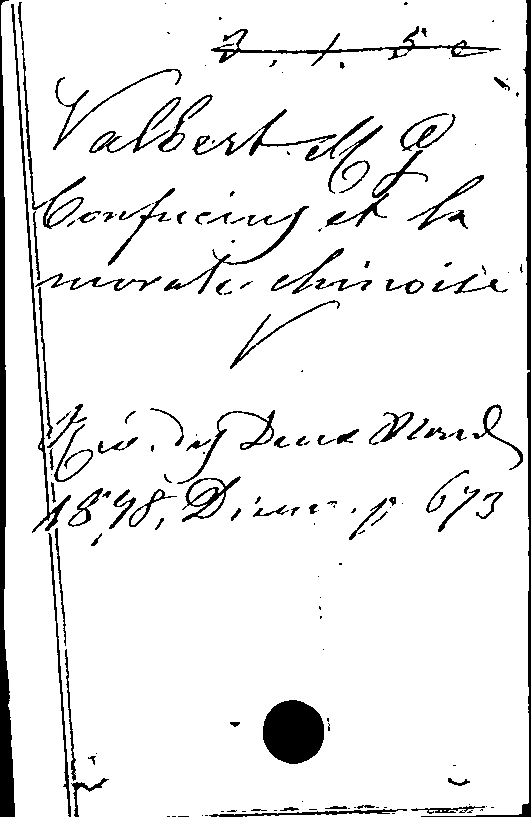 Valbert M G
Confucius et la
morale chinoise
V
Rev. des Deux Mond
1898, Décem. p 673